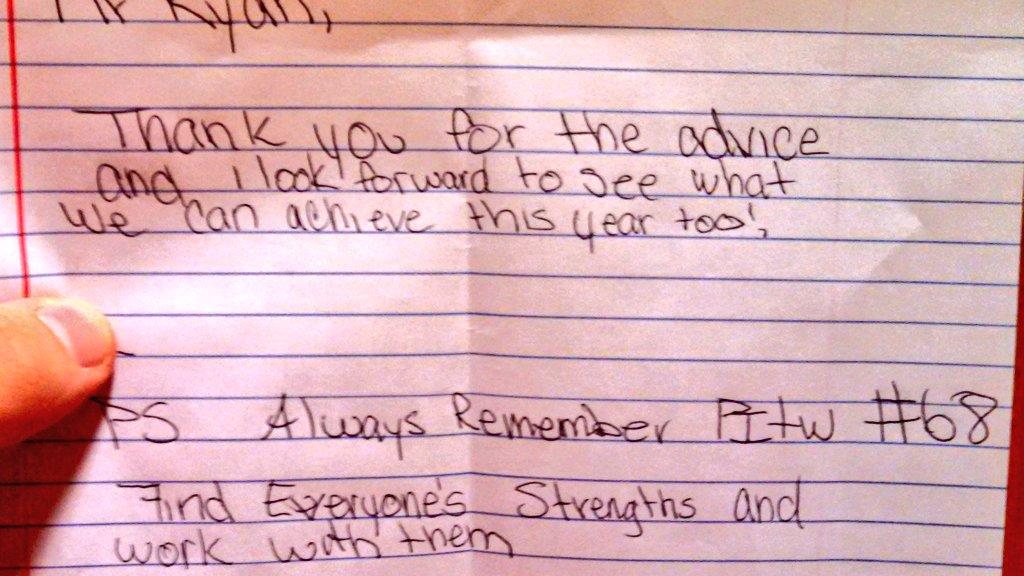 Mr Ryan,
Thank you for the advice
and i look forward to see what
We can achieve this year too!,
PS Always Remember PItW #68
Find Everyone's Strengths and
work with them